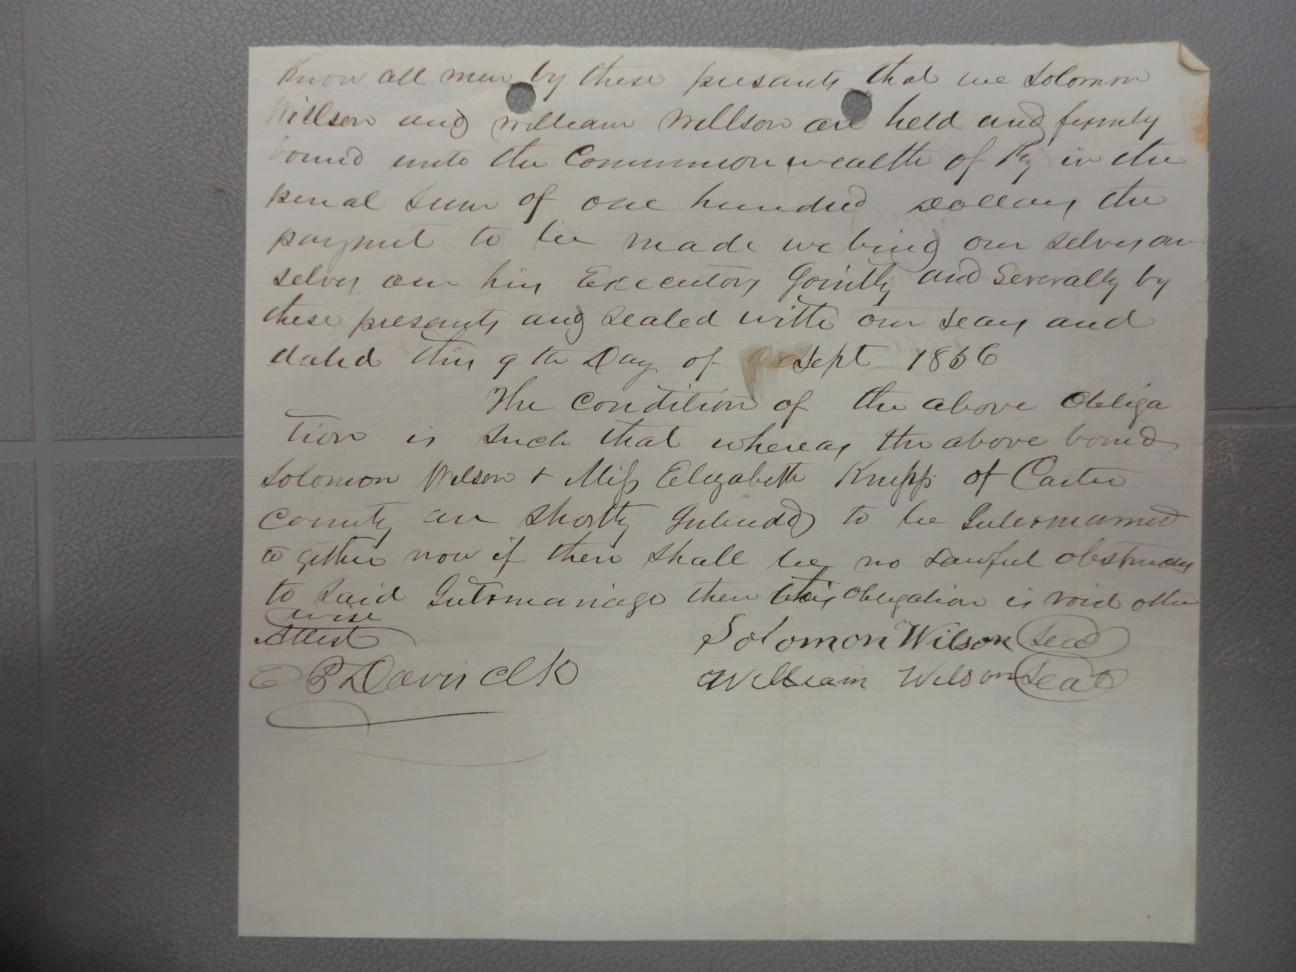 Know all men by these presants that we Solomon
Willson and William Willson are held and firmly
bound unto the Commmonwealth of Ky in the
penal Sum of one hundred Dollars the
paymet to be made we bind our selves our
selves our hiry Executors Jointly and Severally by
these presants and sealed with our seals and
dated this 9th Day of Sept 1856
The Condition of the above Obliga
tion is such that whereas the above bound
Solomon Wilson + Miss Elizabeth Knipp of Carter
County are shortly Intended to be Intermarried
to gether now if there shall be no Lawful obstruces
to Said Intermariage then this obligation is void other
wise
Attest
Solomon Wilson Seal
C B Davis Clk
William Wilson Seal